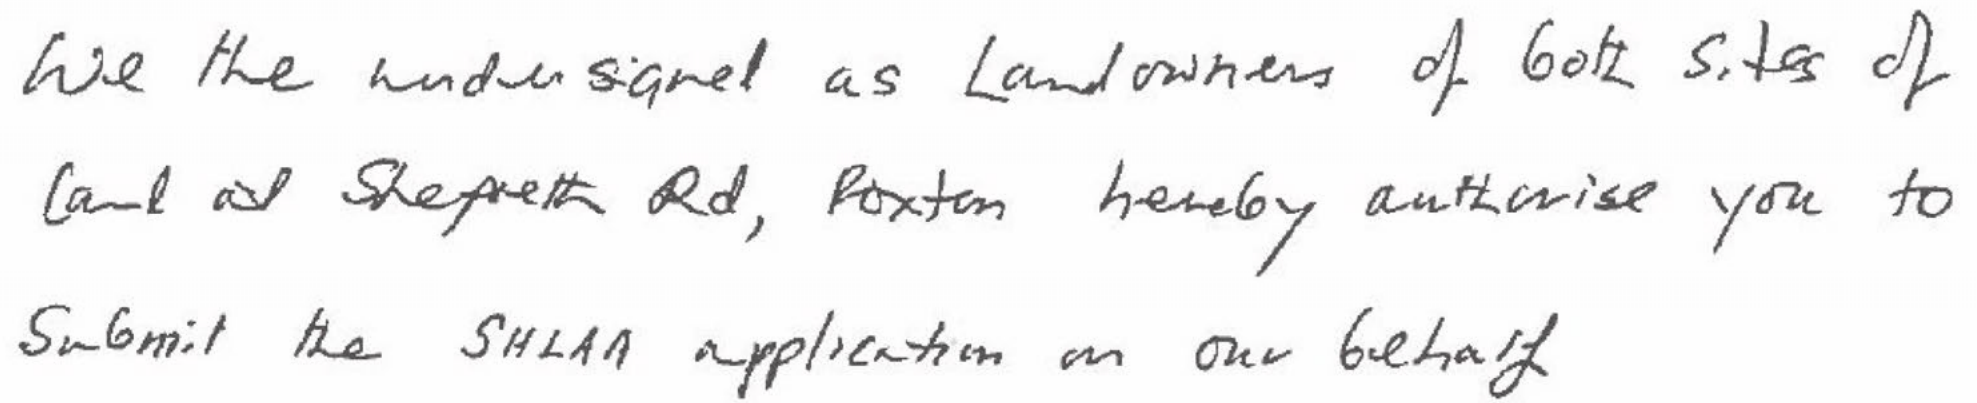 We the undersigned as Landowners of both sites of
land at Shepreth Rd, Foxton hereby authorise you to
Submit the SHLAA application on our behalf